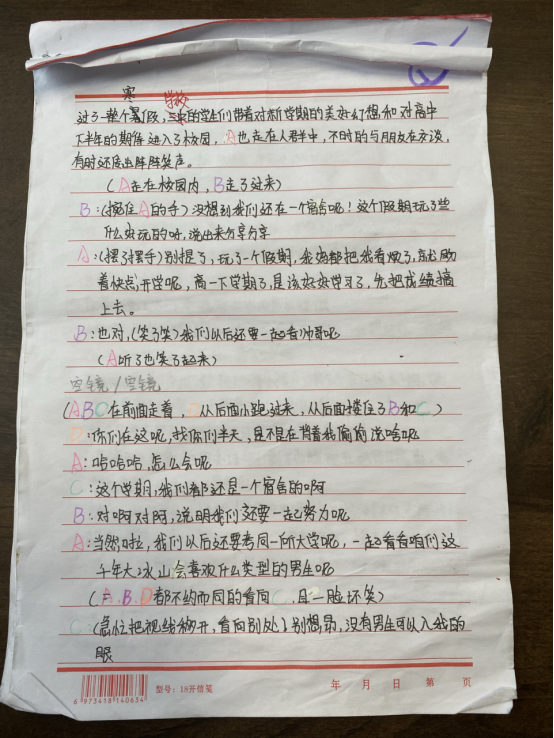 寒 学校
过了一整个暑假，的学生们带着对新学期的美好幻想和对高中
下半年的期待进入了校园，A也走在人群中，不时的与朋友在交谈，
有时还传出阵阵笑声。
（A走在校园内，B走了过来）
B：（挽住A的手）没想到我们还在一个宿舍呢！这个假期玩了些
什么好玩的呀，说出来分享分享
A：（摆了摆手）别提了，玩了一个假期，我妈都把我看烦了，就盼
着快点开学呢，高一下学期了，是该好好学习了，先把成绩搞
上去。
B：也对，（笑了笑）我们以后还要一起看帅哥呢
（A听了也笑了起来）
空镜／空镜
（A B C在前面走着，D从后面小跑过来，从后面搂住了B和C）
D：你们在这呢，找你们半天，是不是在背着我偷偷说啥呢
A：哈哈哈，怎么会呢
C：这个学期，我们都还是一个宿舍的啊
B：对啊对啊，说明我们还要一起努力呢
A：当然啦，我们以后还要考同一所大学呢，一起看看咱们这
千年大冰山会喜欢什么类型的男生呢
（A、B、D都不约而同的看向C，且一脸坏笑）
C：（急忙把视线移开，看向别处）别想昂，没有男生可以入我的
眼
6 973418 140634 型号：18开信笺 年 月 日 第 页